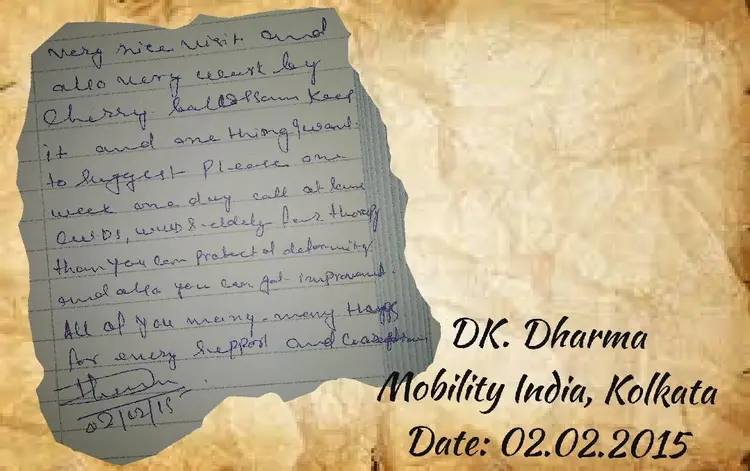 very nice visit and
also very
Cherry Keep
it and one thing I want
to suggest Please one
week one day call at
CWDS, & eldely for therapy
than you can protect of deformity
and also you can get improvement.
All of you many-many thanks
for every support and
02/02/15
DK. Dharma
Mobility India, Kolkata
Date: 02.02.2015